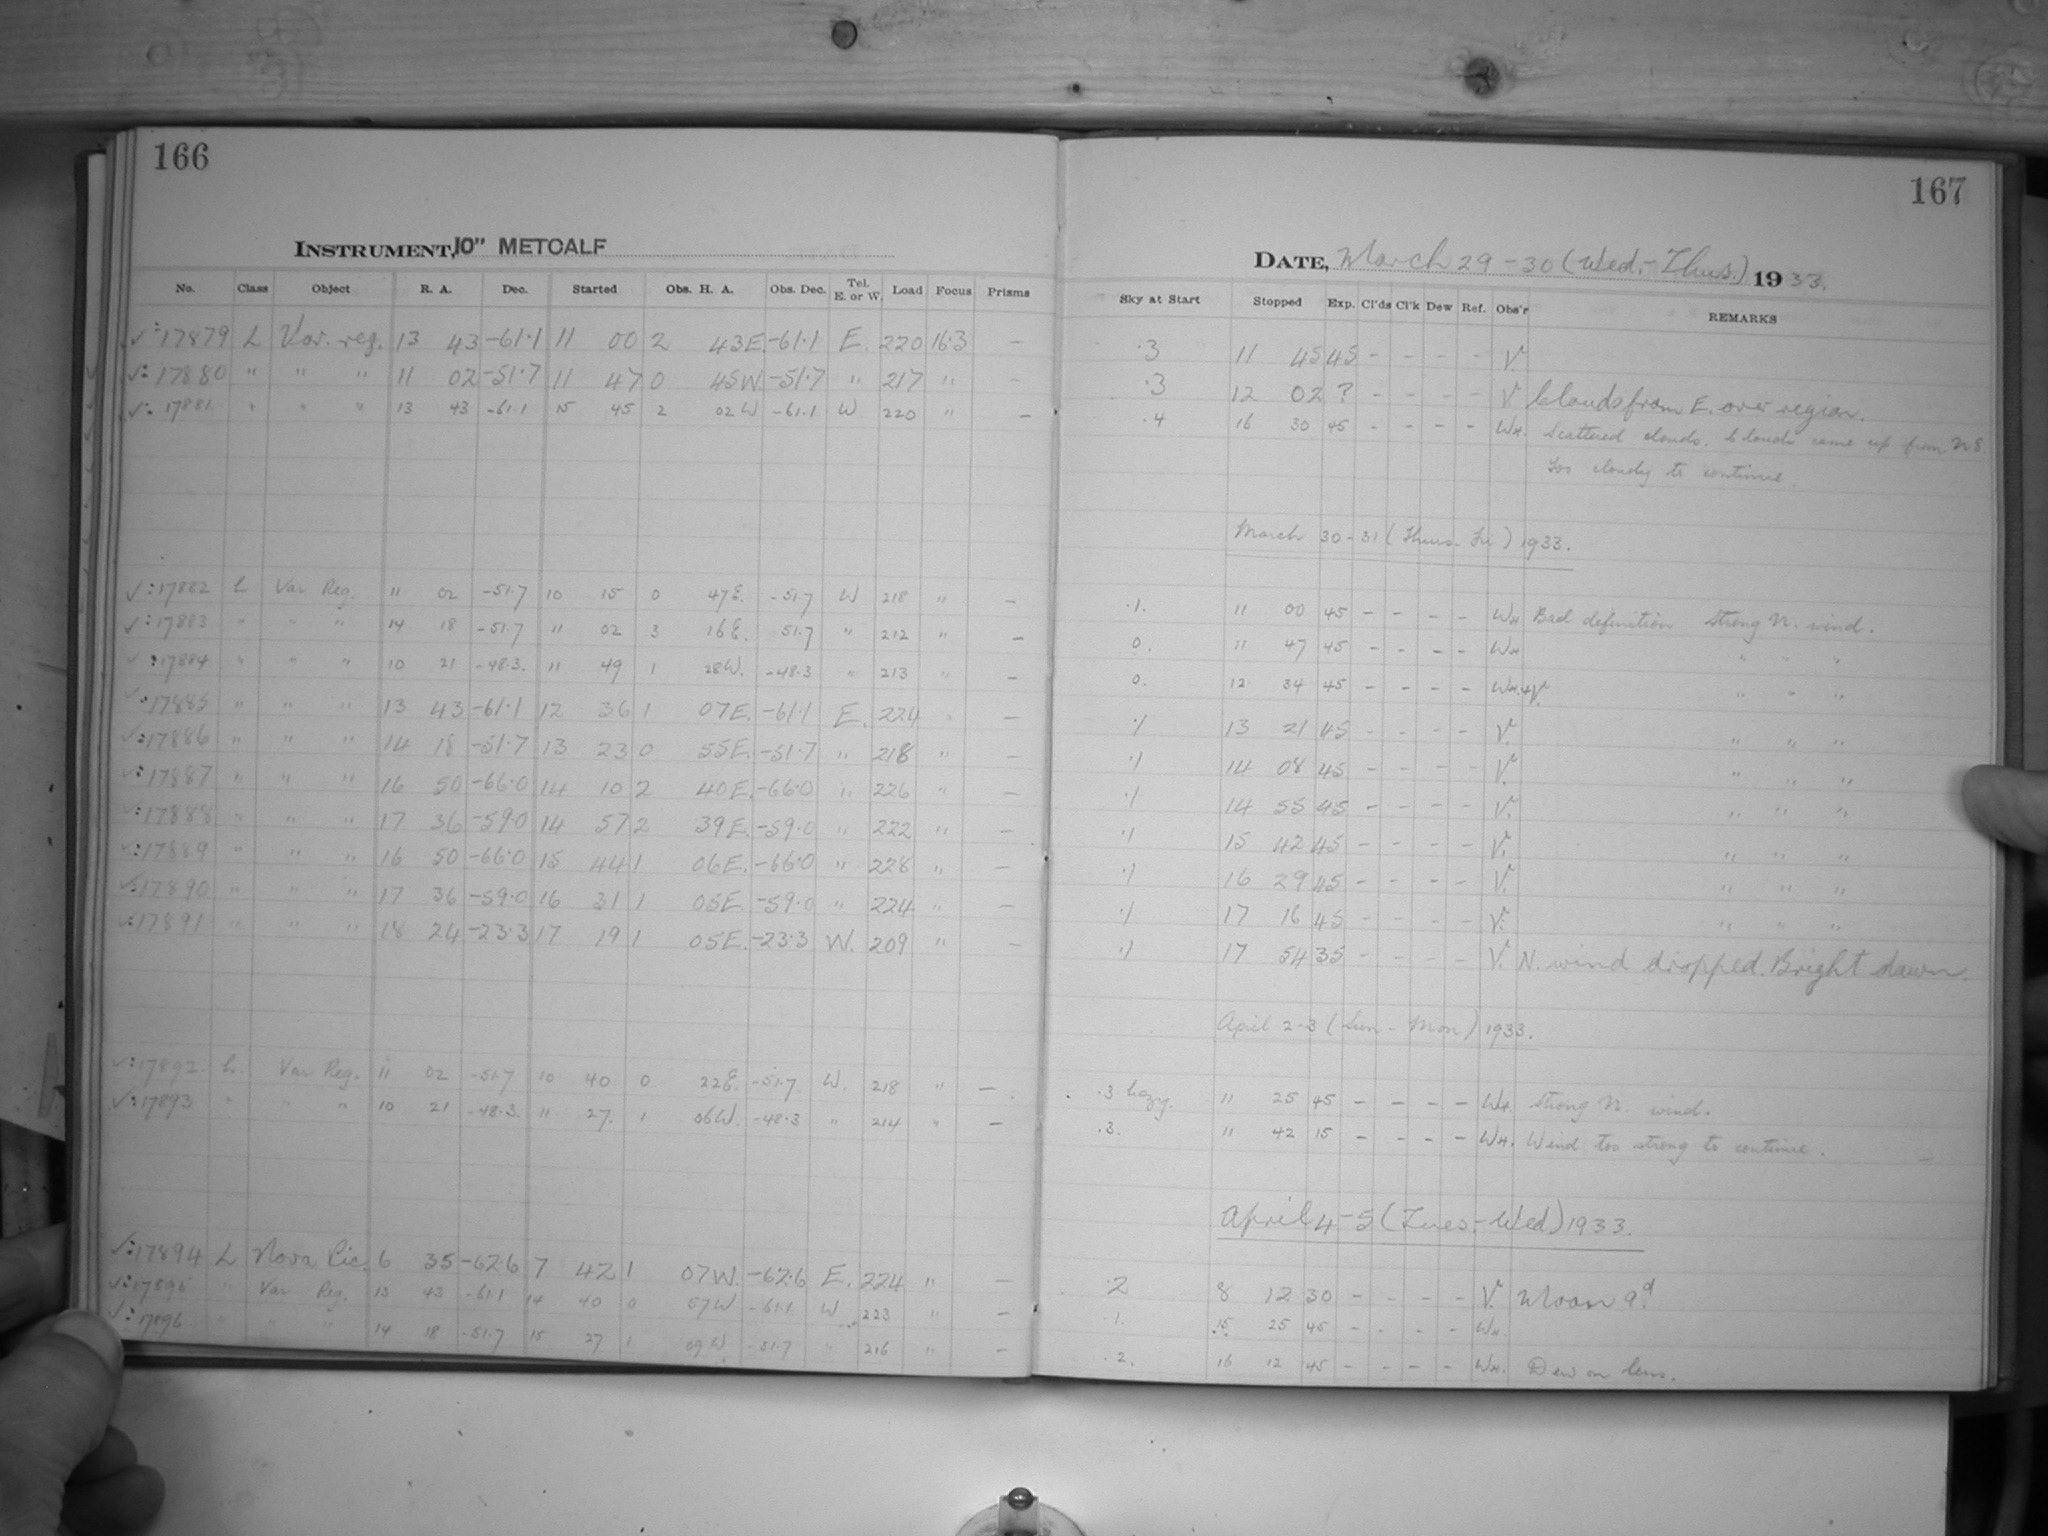 166
INSTRUMENT, 10" METCALF
No. Class Object R. A. Dec. Started Obs. H. A. Obs. Dec. Tel. E. or W. Load Focus Prisms
17879 L Var. reg. 13 43 -61.1 11 00 2 43E. -61.1 E. 220 16.3 -
17880 " " " 11 02 -51.7 11 47 0 45W. -51.7 " 217 " -
17881 " " " 13 43 -61.1 15 45 2 02W -61.1 W 220 " -
17882 L Var Reg. 11 02 -51.7 10 15 0 47E. -51.7 W 218 " -
17883 " " " 14 18 -51.7 11 02 3 16E. 51.7 " 212 " -
17884 " " " 10 21 -48.3. 11 49 1 28W. -48.3 " 213 " -
17885 " " " 13 43 -61.1 12 36 1 07E. -61.1 E. 224 " -
17886 " " " 14 18 -51.7 13 23 0 55E. -51.7 " 218 " -
17887 " " " 16 50 -66.0 14 10 2 40E. -66.0 " 226 " -
17888 " " " 17 36 -59.0 14 57 2 39E. -59.0 " 222 " -
17889 " " " 16 50 -66.0 15 44 1 06E. -66.0 " 228 " -
17890 " " " 17 36 -59.0 16 31 1 05E. -59.0 " 224 " -
17891 " " " 18 24 -23.3 17 19 1 05E. -23.3 W. 209 " -
17892. L. Var Reg. 11 02 -51.7 10 40 0 22E. -51.7. W. 218 " -
17893 " " " 10 21 -48.3. 11 27. 1 06W. -48.3 " 214 " -
17894 L Nova Pic. 6 35 -62.6 7 42 1 07W. -62.6 E. 224 " -
17895 " Var Reg. 13 43 -61.1 14 40 0 57W -61.1 W 223 " -
17896 " " " 14 18 -51.7 15 27 1 09W -51.7 " 216 " -
167
DATE, March 29-30 (Wed.-Thus.) 1933.
Sky at Start Stopped Exp. Cl'ds Cl'k Dew Ref. Obs'r REMARKS
.3 11 45 45 - - - - V.
.3 12 02 ? - - - - V. Clouds from E. over region.
.4 16 30 45 - - - - WH. Scattered clouds. Clouds came up from N.E.
Too cloudy to continue.
March 30-31 (Thurs-Fri) 1933.
.1. 11 00 45 - - - - WH Bad definition strong N. wind.
0. 11 47 45 - - - - WH " " "
0. 12 34 45 - - - - WH.+V. " " "
.1 13 21 45 - - - - V. " " "
.1 14 08 45 - - - - V. " " "
.1 14 55 45 - - - - V. " " "
.1 15 42 45 - - - - V. " " "
.1 16 29 45 - - - - V. " " "
.1 17 16 45 - - - - V. " " "
.1 17 54 35 - - - - V. N. wind dropped. Bright dawn.
April 2-3 (Sun-Mon) 1933.
.3 hazy. 11 25 45 - - - - WH. Strong N. wind.
.3. 11 42 15 - - - - WH. Wind too strong to continue.
April 4-5 (Tues.-Wed) 1933.
.2 8 12 30 - - - - V. Moon 9d.
.1. 15 25 45 - - - - WH
.2. 16 12 45 - - - - WH. Dew on lens.